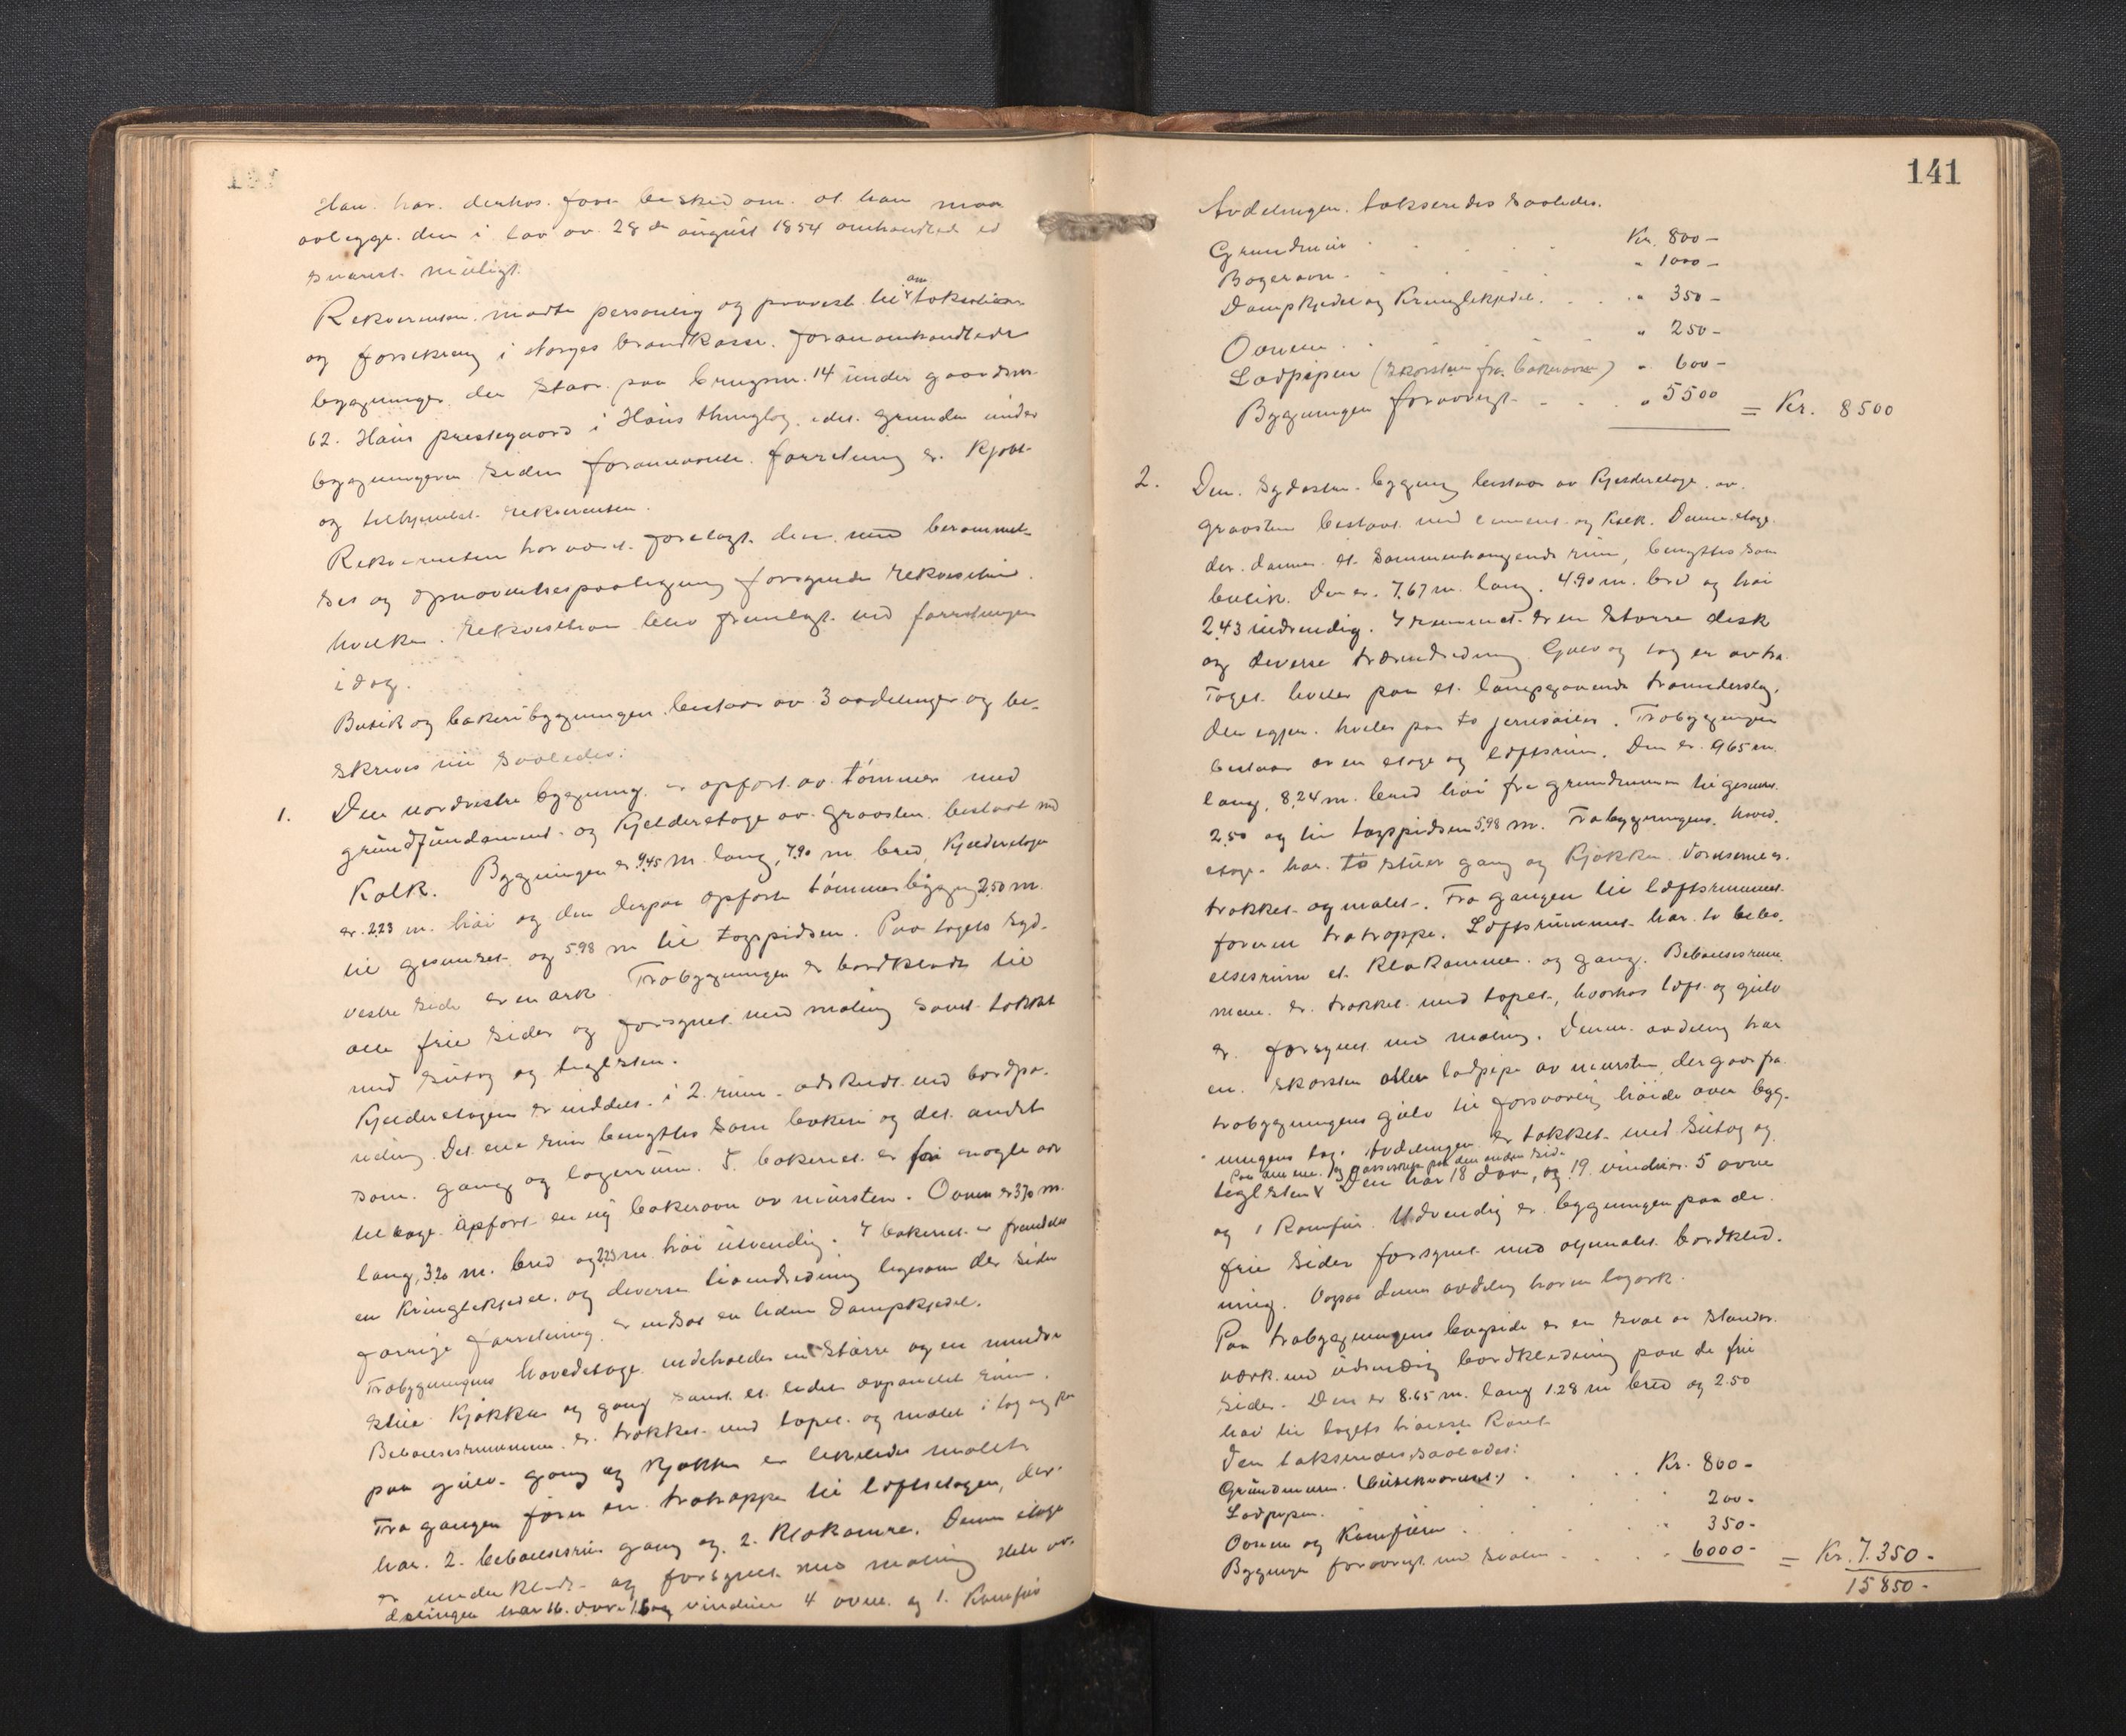 Han har derhos faat besked om at han maa
avlægge den i lov av 28de august 1854 omhandlede ed
snarest muligt.
Rekvirenten mødte personlig og paaviste til omtaksation
og forsikring i Norges brandkasse foranomhandlede
bygninger der staar paa brugsnr. 14 under gaardsnr.
62. Haus prestegaard i Haus thinglag, idet grunden under
bygningerne siden forannævnte forretning er kjøbt
og tilhjemlet rekvirenten.
Rekvirenten har været forelagt den med berammel-
ses og opnævnelsespaategning forsynede rekvisition
hvilken rekvisition blev fremlagt ved forretningen
idag.
Butik og bakeribygningen bestaar av 3 avdelinger og be-
skrives nu saaledes:
1. Den nordvestre bygning er opført av tømmer med
grundfundament og kjelderetage av graasten bestaaet med
Kalk. Bygningen er 9,45 m. lang, 7,90 m. bred, kjelderetagen
er 2,23 m. høi og den derpaa opførte tømmerbygning 2,50 m.
til gesimset og 5,98 m til tagspidsen. Paa tagets syd-
vestre side er en ark. Træbygningen er bordklædt til
alle frie sider og forsynet med maling samt tækket
med sutag og teglsten.
Kjelderetagen er inddelt i 2 rum adskilt med bordpa-
neling. Det ene rum benyttes som bakeri og det andet
som gang og lagerrum. I bakeriet er for nogle aar
tilbage opført en ny bakerovn av mursten. Ovnen er 3,70 m.
lang, 3,20 m. bred og 2,23 m. høi utvendig. I bakeriet er fremdeles
en Kringlekjedel og diverse træindredning ligesom der siden
forrige forretning er indsat en liden Dampkjedel.
Træbygningens hovedetage indeholder en større og en mindre
stue Kjøkken og gang samt et lidet avpanelet rum.
Beboelsesrummene er trukket med tapet og malet i tag og
paa gulv. gang og Kjøkken er likeledes malet.
Fra gangen fører en trætrappe til loftsetagen, der
har 2 beboelsesrum gang og 2 Klækamre. Denne etage
er underklædt og forsynet med maling. Hele av-
delingen har 16 døre 15 vinduer 4 ovne og 1 Komfur
141
Avdelingen takseredes saaledes.
Grundmur Kr. 800 –
Bagerovn " 1000 –
Dampkjedel og Kringlekjedel " 350 –
Ovnene " 250 –
Ladpipen (skorsten fra bakerovn) " 600 –
Bygningen forøvrigt " 5500 = Kr. 8500
2. Den sydøstre bygning bestaar av Kjelderetage av
graasten bestaaet med cement og Kalk. Denne etage
der danner et sammenhængende rum, benyttes som
butik. Den er 7,67 m. lang, 4,90 m. bred og høi
2,43 indvendig. I rummet er en større disk
og diverse træindredning. Gulv og tag er av træ.
Taget hviler paa et langsgaaende træunderslag,
der igjen hviler paa to jernsøiler. Træbygningen
bestaar av en etage og loftsrum. Den er 9,65 m.
lang, 8,24 m. bred høi fra grundmuren til gesims.
2,50 og til tagspidsen 5,98 m. Træbygningens hoved-
etage har to stuer gang og Kjøkken. Værelserne er
trukket og malet. Fra gangen til loftsrummet
fører en trætrappe. Loftsrummet har to bebo-
elsesrum et Klækammer og gang. Beboelsesrum-
mene er trukket med tapet, hvorhos loft og gulv
er forsynet med maling. Denne avdeling har
en skorsten eller ladpipe av mursten der gaar fra
træbygningens gulv til forsvarlig høide over byg-
ningens tag. Avdelingen er tækket med sutag og
paa den ene og paa den anden side
teglsten Den har 18 døre, og 19 vinduer 5 ovne
og 1 Komfur. Utvendig er bygningen paa de
frie sider forsynet med oljemalet bordklæd-
ning. Ogsaa denne avdeling har en tagark.
Paa træbygningens bagside er en sval av stander-
verk med utvendig bordklædning paa de frie
sider. Den er 8.65 m. lang 1.28 m bred og 2.50
høi til tagets høieste Kant
Den takseredes saaledes:
Grundmuren (butiksrommet) Kr. 800 –
Ladpipen 200 –
Ovnene og Komfuren " 350 –
Bygningen forøvrigt med svalen " 6000 – = Kr. 7.350 –
15850 –